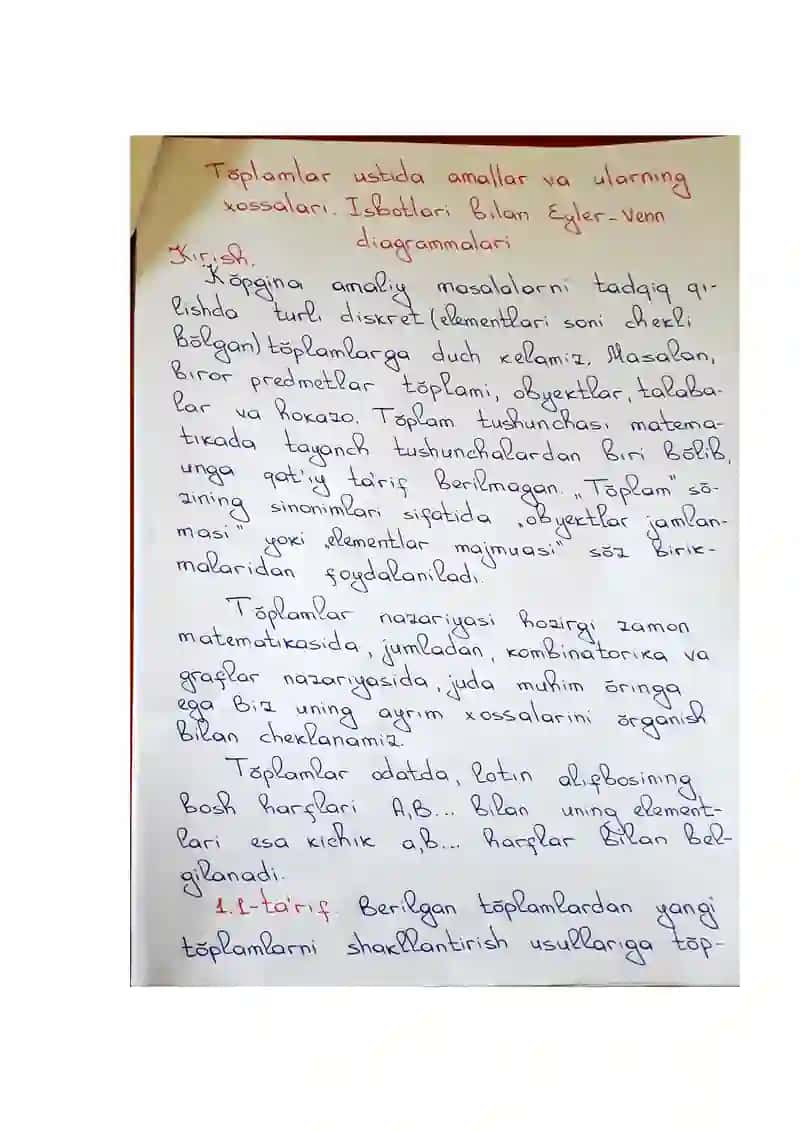 Tōplamlar ustida amallar va ularning
xossalari. Isbotlari bilan Eyler-Venn
diagrammalari
Kirish.
Kōpgina amaliy masalalarni tadqiq qi-
lishda turli diskret (elementlari soni chekli
bōlgan) tōplamlarga duch kelamiz. Masalan,
biror predmetlar tōplami, obyektlar, talaba-
lar va hokazo. Tōplam tushunchasi matema-
tikada tayanch tushunchalardan biri bōlib,
unga qat'iy ta'rif berilmagan. „Tōplam" sō-
zining sinonimlari sifatida „obyektlar jamlan-
masi" yoki „elementlar majmuasi" sōz birik-
malaridan foydalaniladi.
Tōplamlar nazariyasi hozirgi zamon
matematikasida, jumladan, kombinatorika va
graflar nazariyasida, juda muhim ōringa
ega Biz uning ayrim xossalarini ōrganish
bilan cheklanamiz.
Tōplamlar odatda, lotin alifbosining
bosh harflari A,B... bilan uning element-
lari esa kichik a,b... harflar bilan bel-
gilanadi.
1.1-ta'rif. Berilgan tōplamlardan yangi
tōplamlarni shakllantirish usullariga tōp-